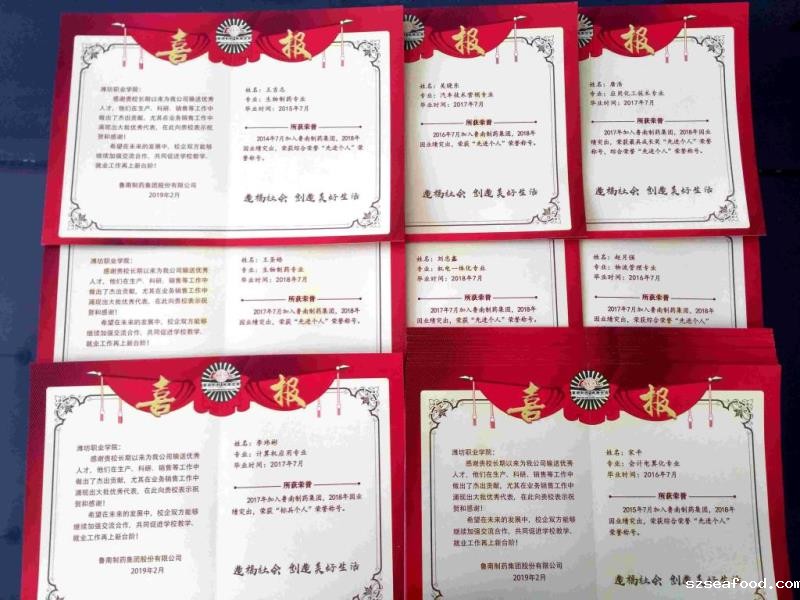 喜 报
潍坊职业学院：
感谢贵校长期以来为我公司输送优秀
人才，他们在生产、科研、销售等工作中
做出了杰出贡献，尤其在业务销售工作中
涌现出大批优秀代表，在此向贵校表示祝
贺和感谢！
希望在未来的发展中，校企双方能够
继续加强交流合作，共同促进学校教学、
就业工作再上新台阶！
鲁南制药集团股份有限公司
2019年2月
姓名：王吉志
专业：生物制药专业
毕业时间：2015年7月
所获荣誉
2014年7月加入鲁南制药集团，2018年
因业绩突出，荣获综合荣誉“先进个人”荣
誉称号。
造福社会 创造美好生活
报
姓名：吴晓东
专业：汽车技术营销专业
毕业时间：2017年7月
所获荣誉
2016年7月加入鲁南制药集团，2018年
因业绩突出，荣获综合荣誉“先进个人”荣
誉称号。
造福社会 创造美好生活
报
姓名：唐浩
专业：应用化工技术专业
毕业时间：2017年7月
所获荣誉
2017年7月加入鲁南制药集团，2018年
因业绩突出，荣获最具成长奖“先进个人”荣
誉称号、综合荣誉“先进个人”荣誉称号。
造福社会 创造美好生活
潍坊职业学院：
感谢贵校长期以来为我公司输送优秀
人才，他们在生产、科研、销售等工作中
做出了杰出贡献，尤其在业务销售工作中
涌现出大批优秀代表，在此向贵校表示祝
贺和感谢！
希望在未来的发展中，校企双方能够
继续加强交流合作，共同促进学校教学、
就业工作再上新台阶！
姓名：王圣皓
专业：生物制药专业
毕业时间：2018年7月
所获荣誉
2017年7月加入鲁南制药集团，2018年
因业绩突出，荣获“先进个人”荣誉称号。
姓名：刘忠鑫
专业：机电一体化专业
毕业时间：2018年7月
所获荣誉
2017年7月加入鲁南制药集团，2018年
因业绩突出，荣获“先进个人”荣誉称号。
姓名：赵月强
专业：物流管理专业
毕业时间：2016年7月
所获荣誉
2017年7月加入鲁南制药集团，2018年
因业绩突出，荣获综合荣誉“先进个人”
荣誉称号。
喜 报
潍坊职业学院：
感谢贵校长期以来为我公司输送优秀
人才，他们在生产、科研、销售等工作中
做出了杰出贡献，尤其在业务销售工作中
涌现出大批优秀代表，在此向贵校表示祝
贺和感谢！
希望在未来的发展中，校企双方能够
继续加强交流合作，共同促进学校教学、
就业工作再上新台阶！
鲁南制药集团股份有限公司
2019年2月
姓名：李玮彬
专业：计算机应用专业
毕业时间：2017年7月
所获荣誉
2017年加入鲁南制药集团，2018年因业
绩突出，荣获“标兵个人”荣誉称号。
造福社会 创造美好生活
喜 报
潍坊职业学院：
感谢贵校长期以来为我公司输送优秀
人才，他们在生产、科研、销售等工作中
做出了杰出贡献，尤其在业务销售工作中
涌现出大批优秀代表，在此向贵校表示祝
贺和感谢！
希望在未来的发展中，校企双方能够
继续加强交流合作，共同促进学校教学、
就业工作再上新台阶！
鲁南制药集团股份有限公司
2019年2月
姓名：宋平
专业：会计电算化专业
毕业时间：2016年7月
所获荣誉
2015年7月加入鲁南制药集团，2018年
因业绩突出，荣获综合荣誉“先进个人”
荣誉称号。
造福社会 创造美好生活
szseafood.com